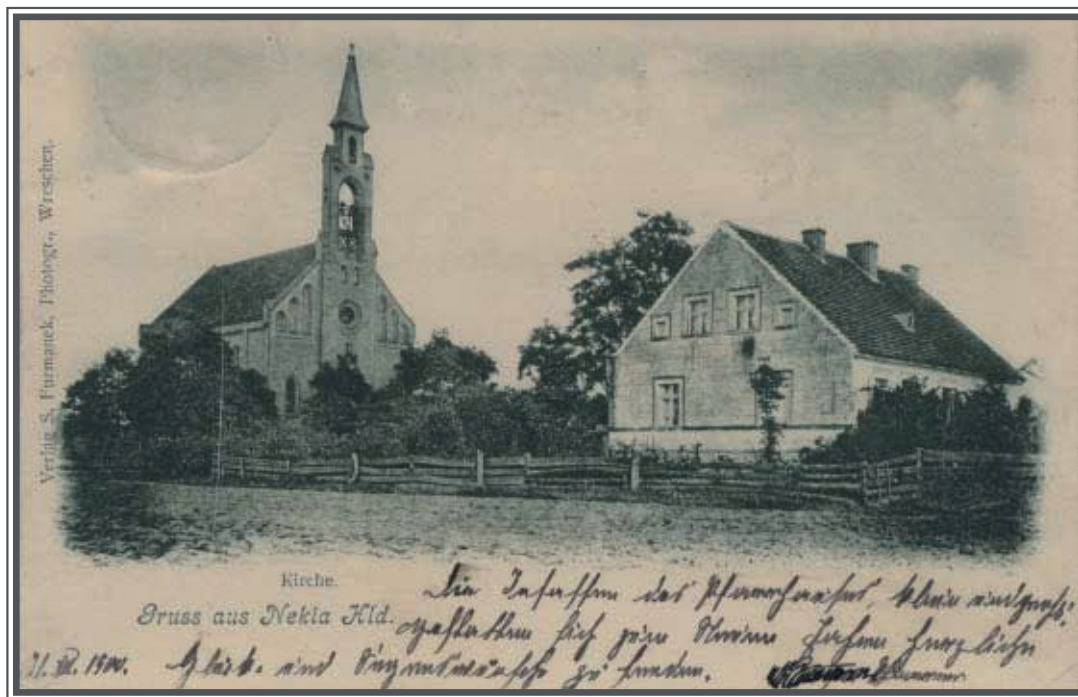 Verlag S. Furmanek, Photogr., Wreschen.
Kirche.
Gruss aus Nekla Hld.
Die Insassen des Pfarrhauses, klein und groß,
gestatten sich zum Neuen Jahre herzliche
Glück- und Segenswünsche zu senden.
31. XII. 1900.